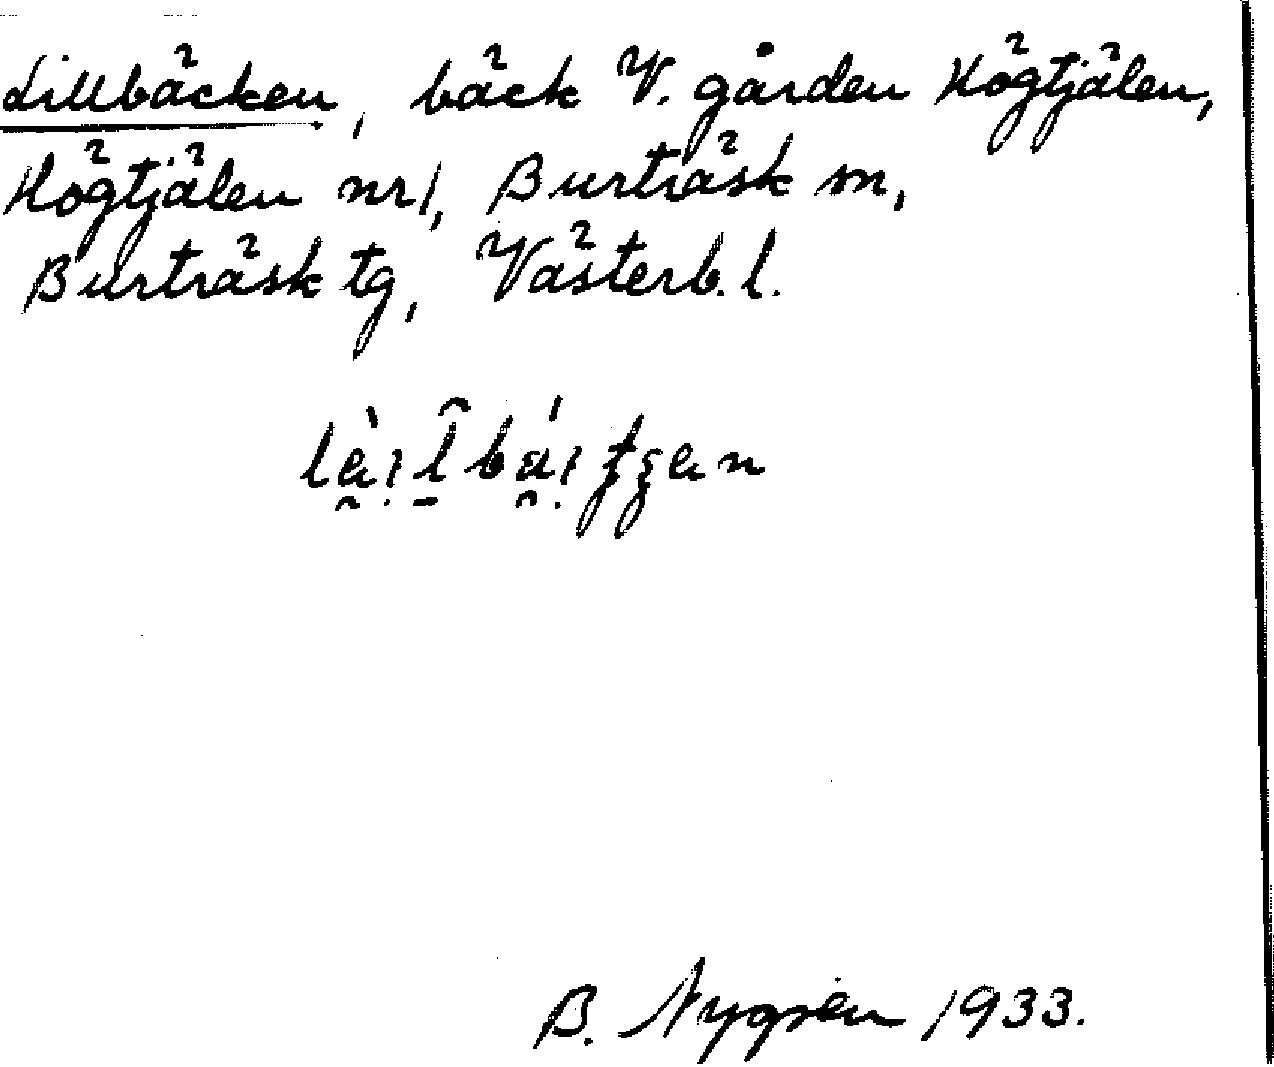 Lillbäcken, bäck V. gården Högtjälen,
Högtjälen nr 1, Burträsk sn,
Burträsk tg, Västerb. l.
B. Nygren 1933.